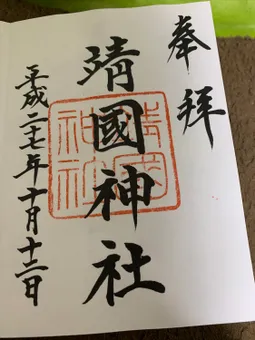 奉拝
靖國神社
靖國神社
平成二十七年十月十二日